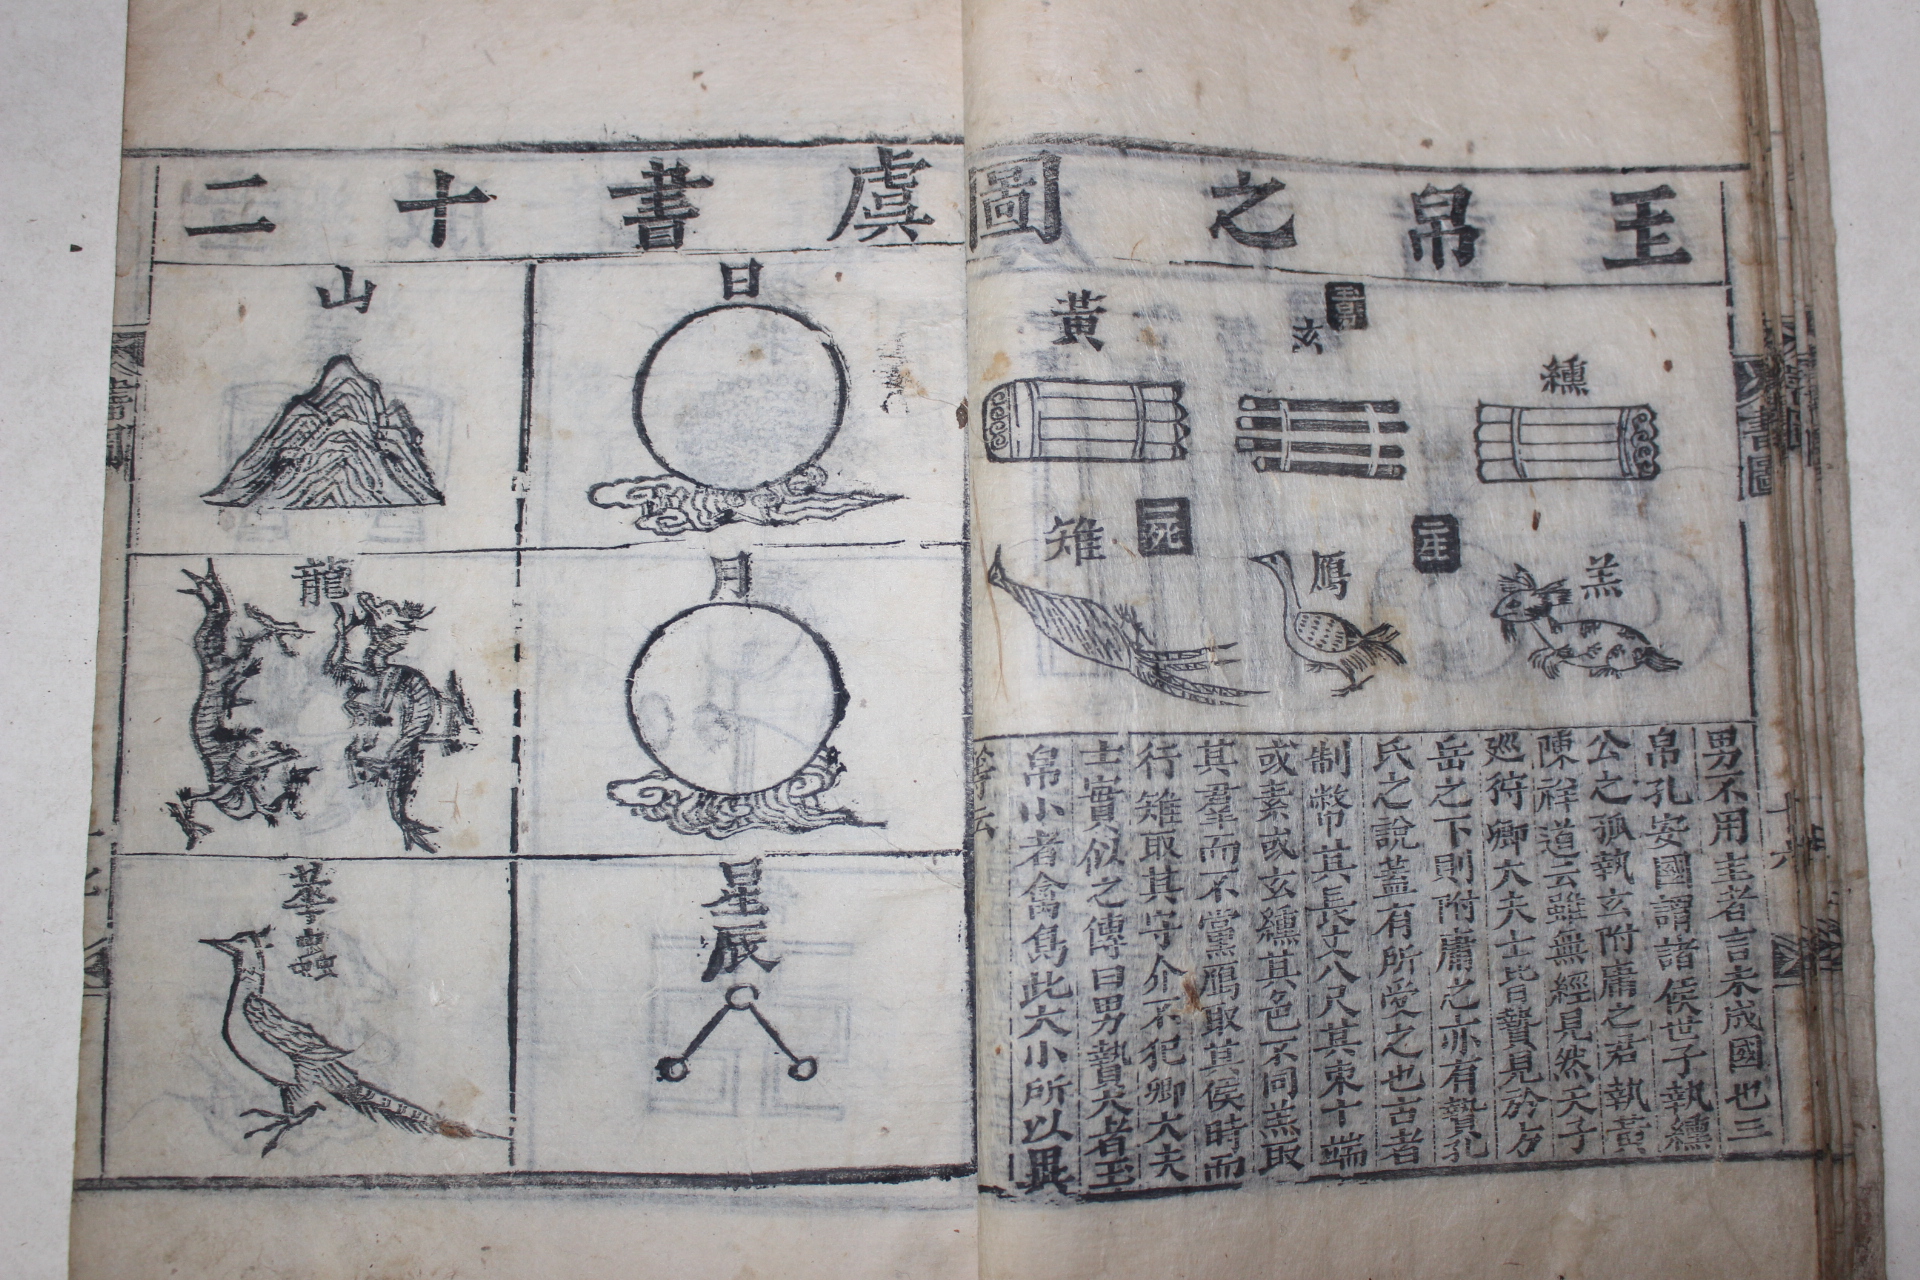 王帛之圖
三帛
纁
玄
黃
二生
羔
鴈
一死
雉
男不用圭者言未成國也三
帛孔安國謂諸侯世子執纁
公之孤執玄附庸之君執黃
陳祥道云雖無經見然天子
巡狩卿大夫士皆贄見於方
岳之下則附庸之亦有贄孔
氏之說蓋有所受之也古者
制幣其長丈八尺其束十端
或素或玄纁其色不同羔取
其羣而不黨鴈取其侯時而
行雉取其守介不犯卿大夫
士實似之傳曰男贄大者玉
帛小者禽鳥此大小所以異
等云
虞書十二
日
月
星辰
山
龍
華蟲